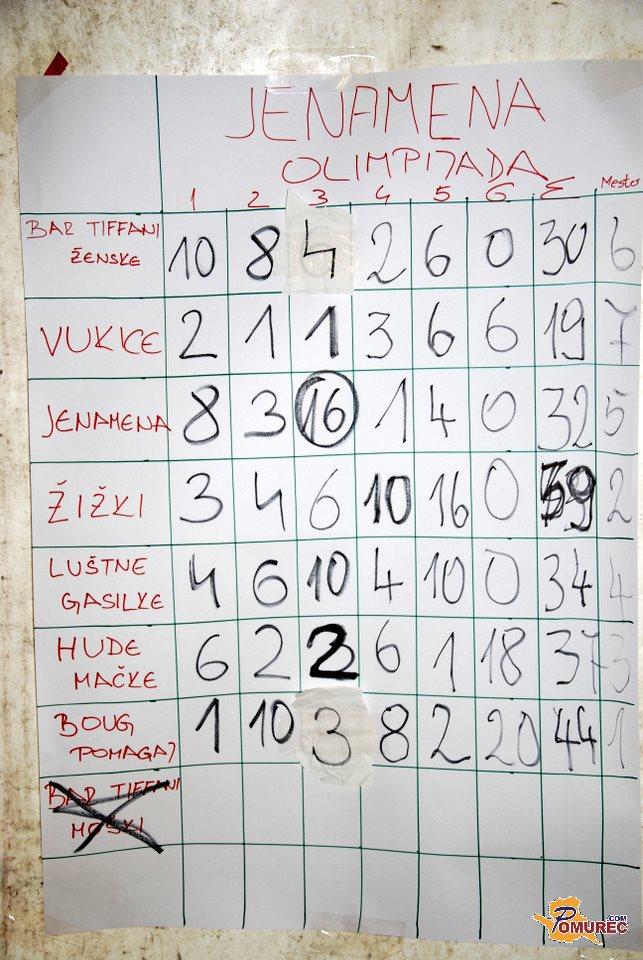 JENAMENA
OLIMPIJADA
1 2 3 4 5 6 Σ Mesto
BAR TIFFANI
ŽENSKE
10 8 4 2 6 0 30 6
VUKICE 2 1 1 3 6 6 19 7
JENAMENA 8 3 16 1 4 0 32 5
ŽIŽKI 3 4 6 10 16 0 39 2
LUŠTNE
GASILKE
4 6 10 4 10 0 34 4
HUDE
MAČKE
6 2 2 6 1 18 37 3
BOUG
POMAGAJ
1 10 3 8 2 20 44 1
BAR TIFFANI
MOŠKI
POMUREC.COM